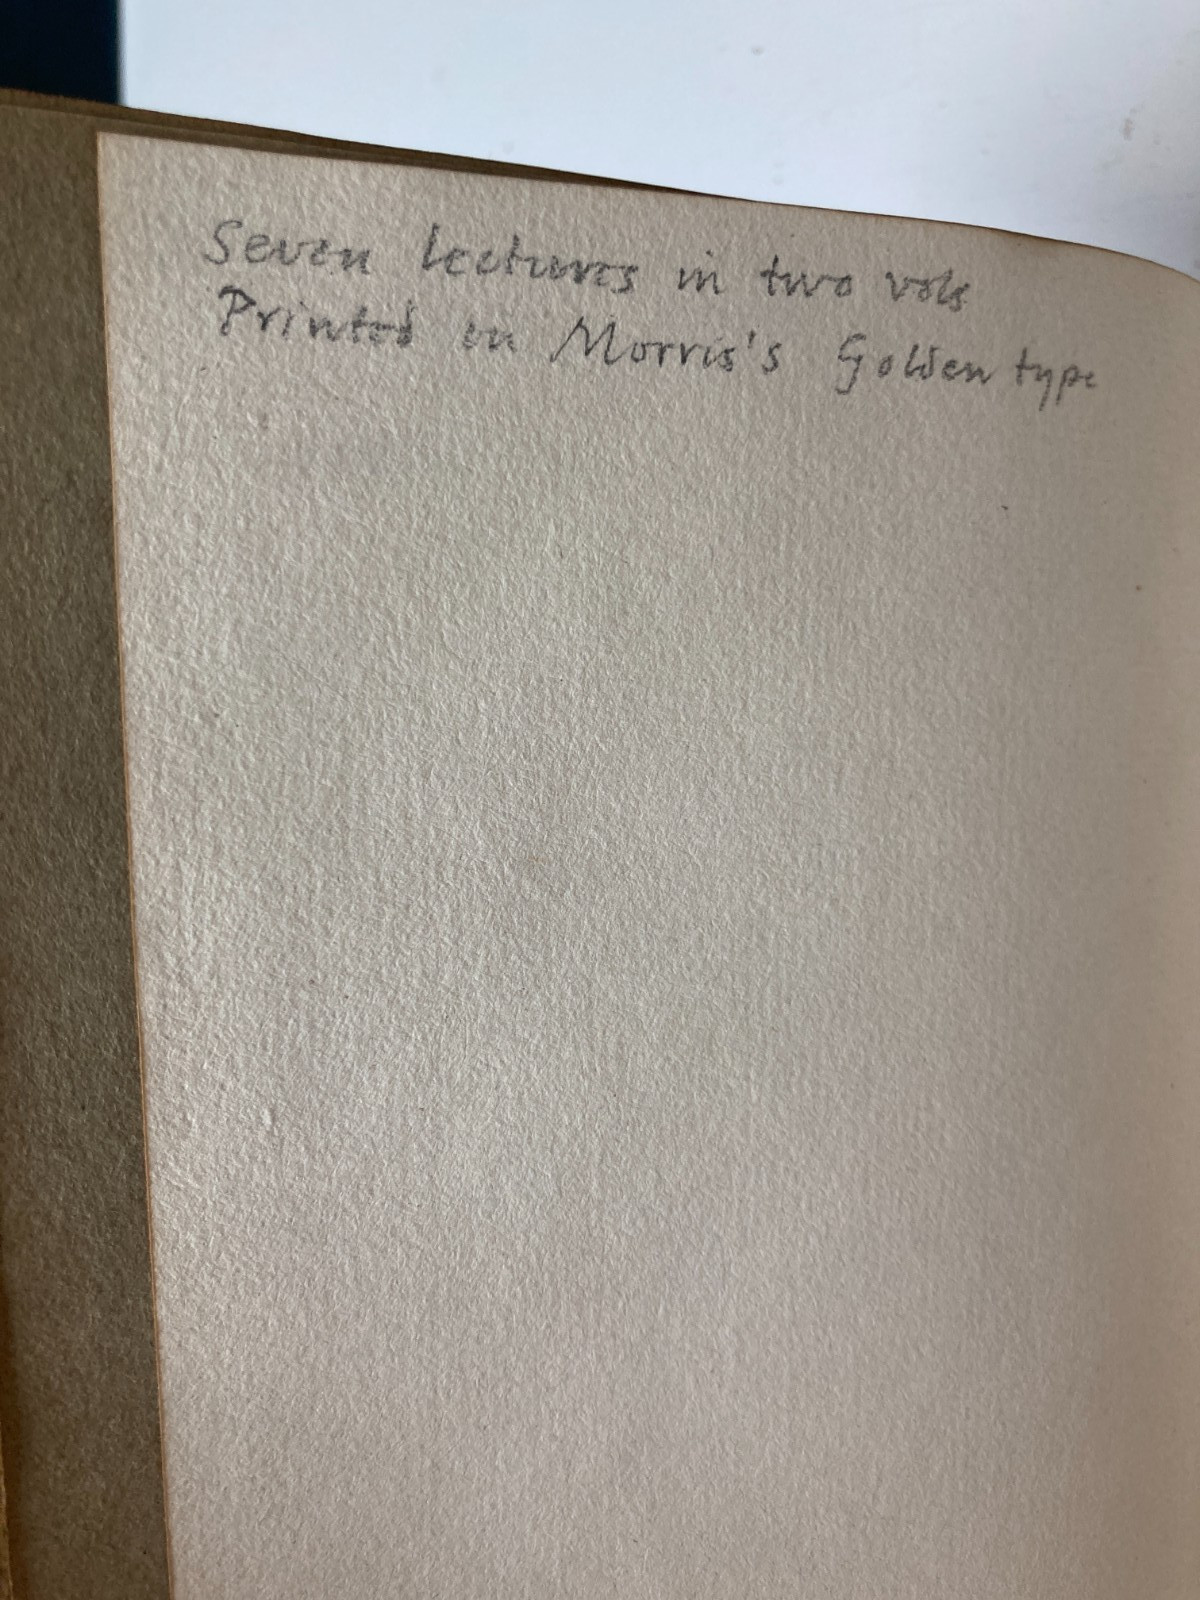 Seven lectures in two vols
Printed in Morris's Golden type